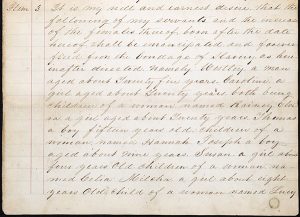 Item 3. It is my will and earnest desire that the
following of my servants and the increase
of the females thereof, born after the date
hereof shall be emancipated and forever
freed from the bondage of Slavery as here
inafter directed namely Dudley a man
aged about Twenty five years. Caroline a
girl aged about Twenty years both being
children of a woman named Rainey
a girl aged about Twenty years. Thomas
a boy fifteen years old children of a
woman named Hannah Joseph a boy
aged about nine years. Susan a girl about
four years old children of a woman na
med Celia Milcha a girl about eight
years old child of a woman named Lucy